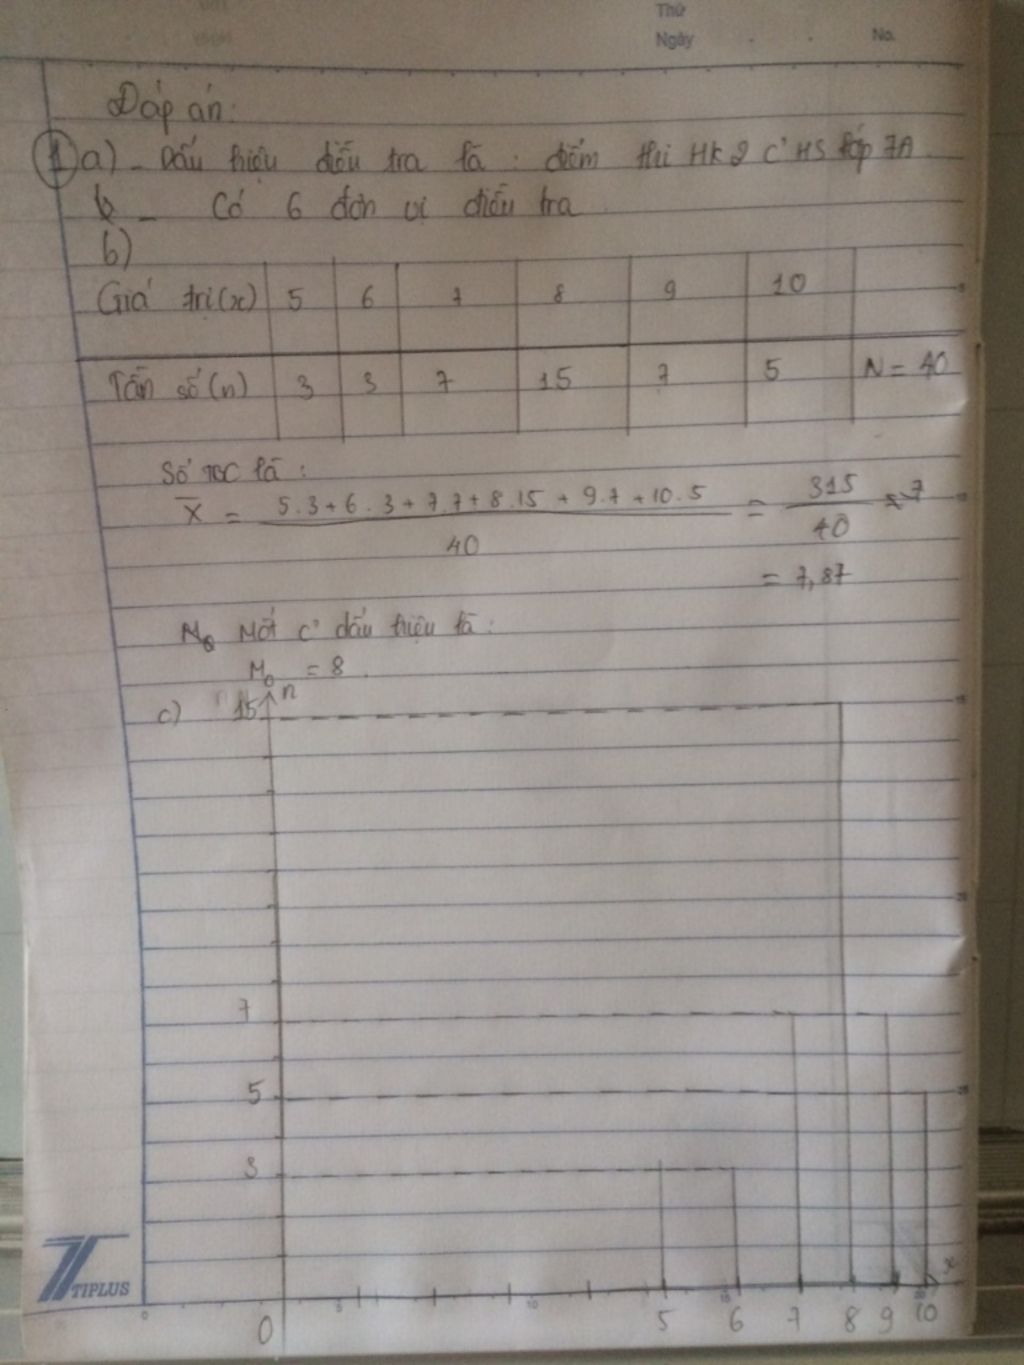 Thứ
Ngày . . No.
Đáp án:
1 a) - Dấu hiệu điều tra là : điểm thi HK2 c' HS lớp 7A
b - Có 6 đơn vị điều tra
b)
Giá trị (x) 5 6 7 8 9 10
Tần số (n) 3 3 7 15 7 5 N = 40
Số TBC là :
X̄ = (5.3+6.3+7.7+8.15+9.7+10.5)/40 = 315/40
= 7,87
M₀ Mốt c' dấu hiệu là :
M₀ = 8 .
c) 15 n
7
5
3
x
5 10 15 20
0 5 6 7 8 9 10
TIPLUS